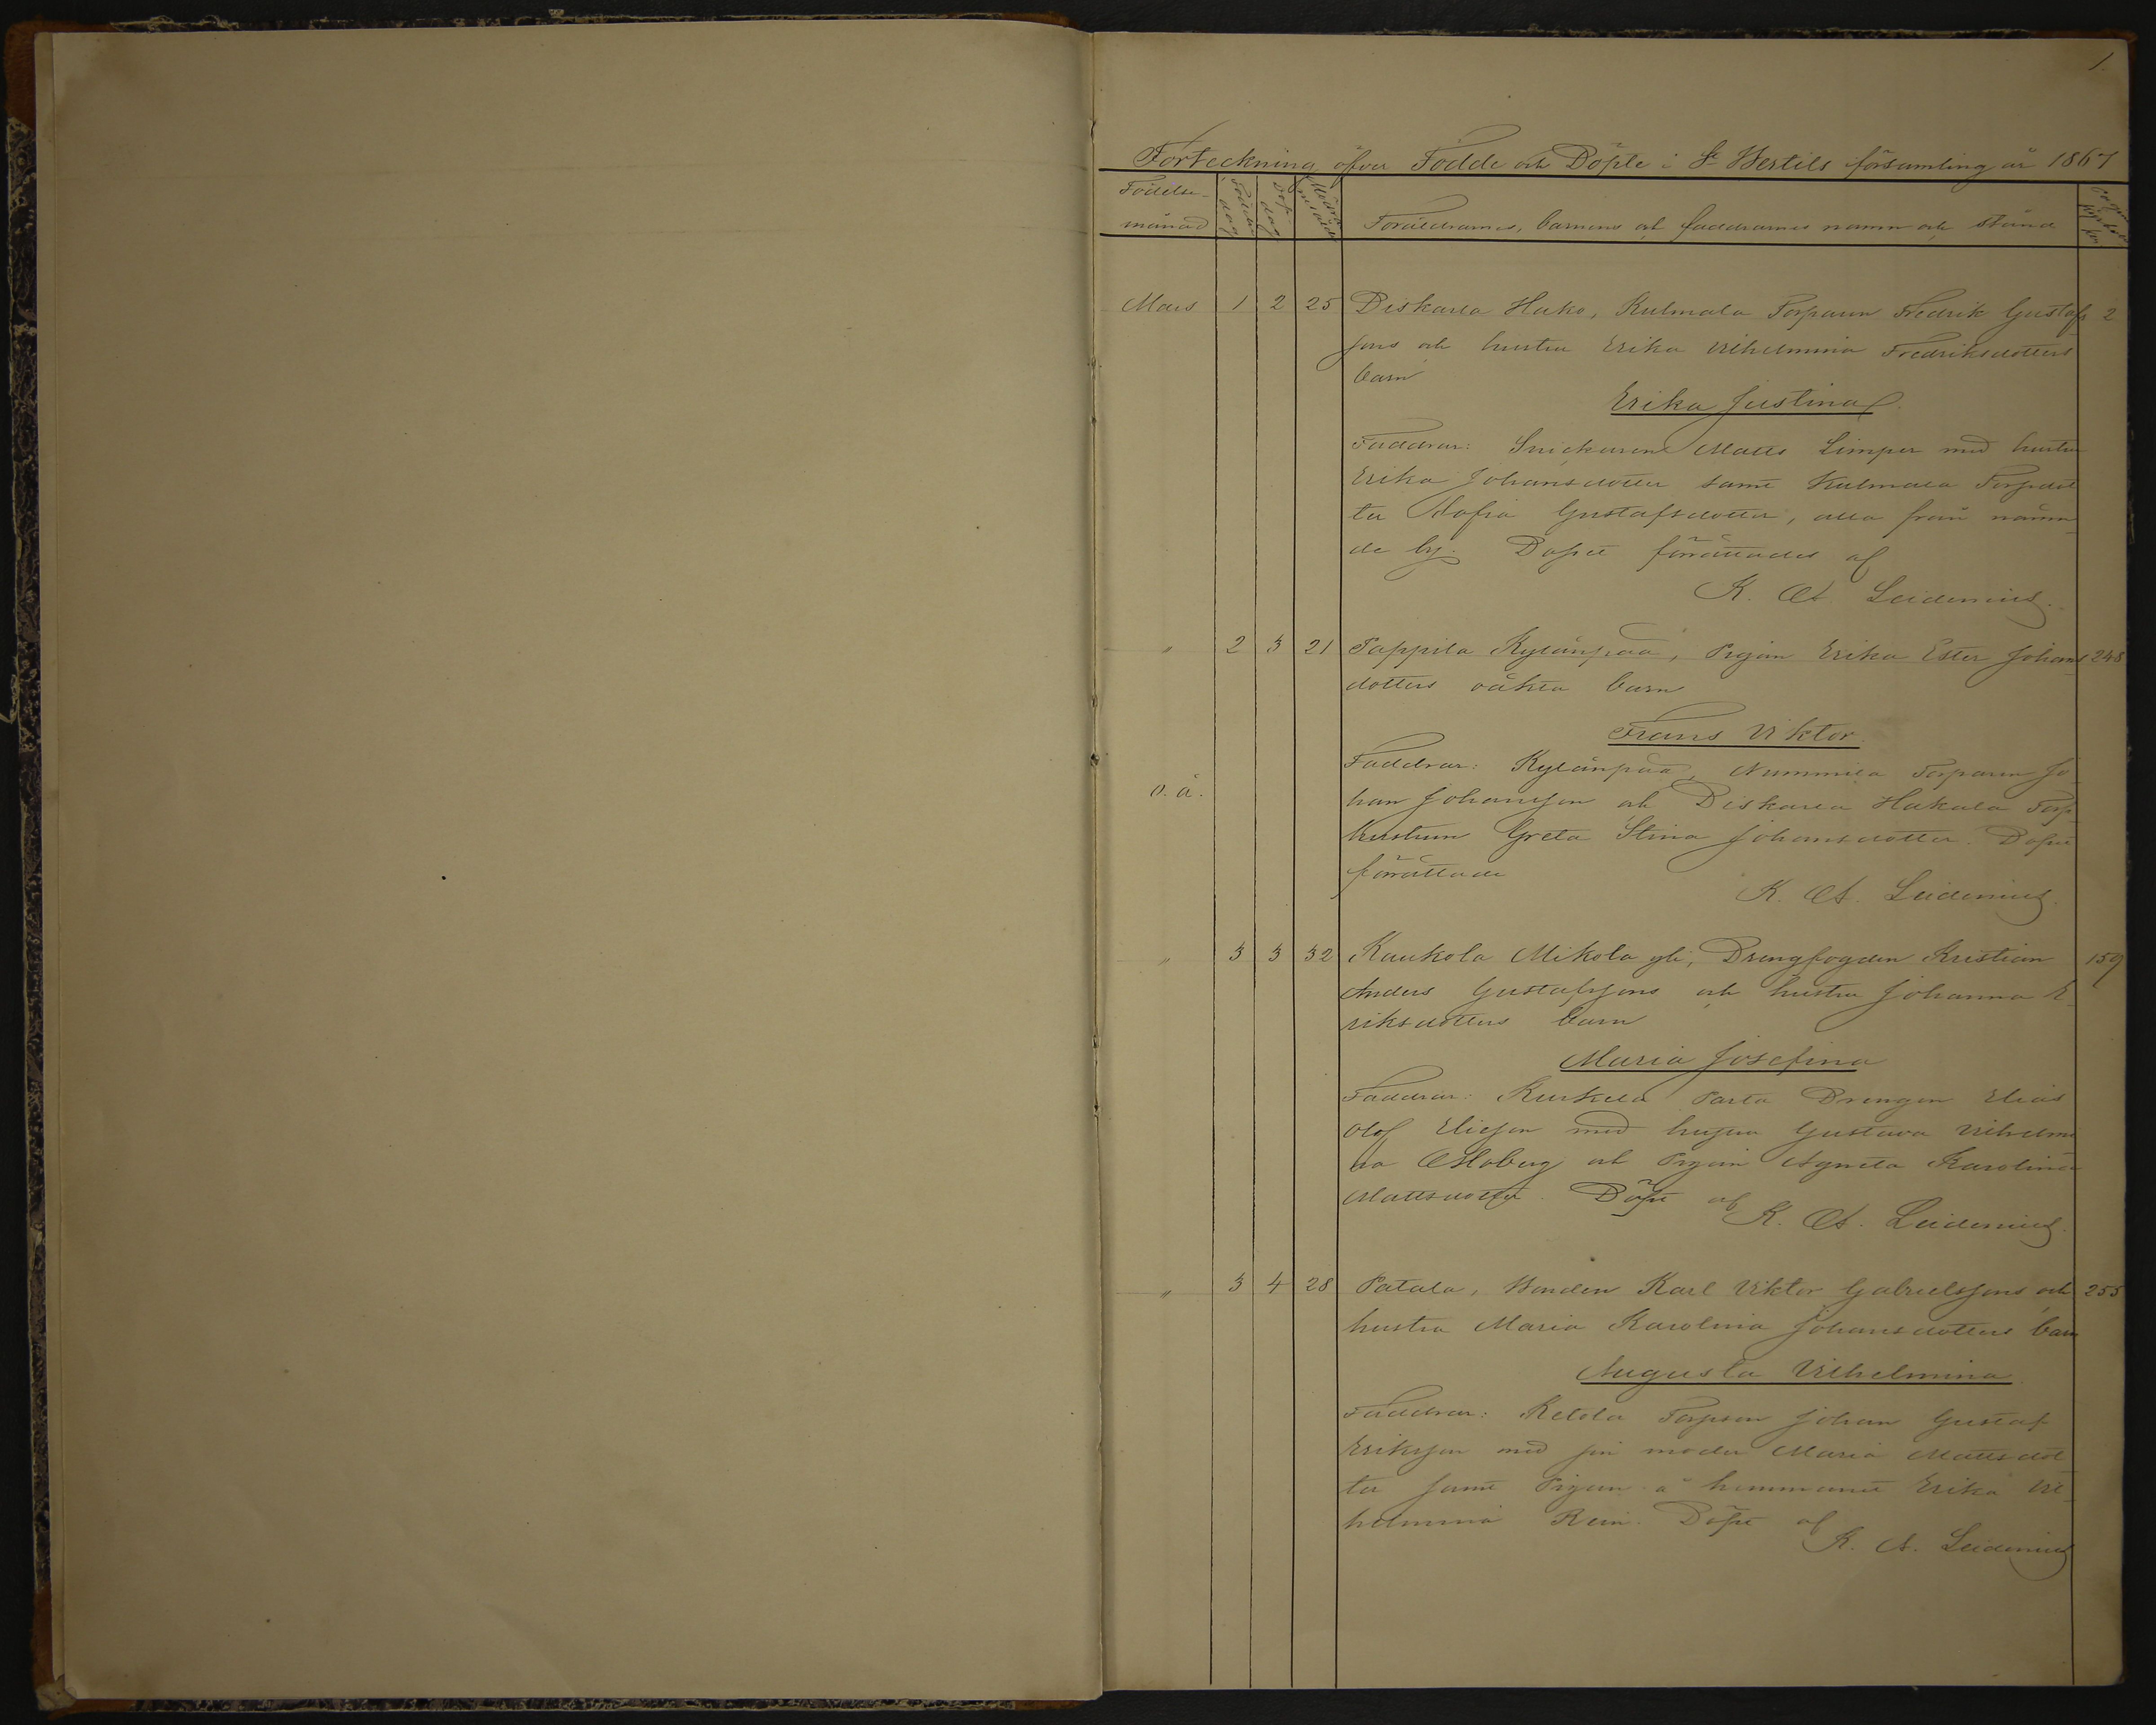 1.
Förteckning öfver Födde och Döpte i St Bertils församling år 1867
Födelse-
månad
Födelse
dag
Dop
dag
Föräldrarnes, barnens och faddrarnes namn och stånd
Mars 1 2 25 Diskarla Hako, Kulmala Torparen Fredrik Gustafs 2
sons och hustru Erika Vilhelmina Fredriksdotters
barn
Erika Justina
Faddrar: Snickaren Matts Limper med hustru
Erika Johansdotter samt Kulmala Torpdot
ter Sofia Gustafsdotter, alla från nämn
de by. Dopet förrättades af
K. A. Leidenius.
" 2 3 21 Pappila Kylänpää, Pigan Erika Ester Johans 248
dotters oäkta barn
Frans Viktor.
Faddrar: Kylänpää, Nummila Torparen Jo
o. ä.
han Johansson och Diskarla Hakala Torp
hustrun Greta Stina Johansdotter. Dopet
förrättade
K. A. Leidenius.
" 3 3 32 Kaukola Mikola yli, Drengfogden Kristian 159
Anders Gustafssons och hustru Johanna E
riksdotters barn
Maria Josefina
Faddrar: Kurkela Parta Drengen Elias
Olof Eliesson med hustru Gustava Vilhelmi
na och Pigan Agneta Karolina
Mattsdotter. Döpt af
K. A. Leidenius.
" 3 4 28 Patala, Bonden Karl Viktor Gabrielssons och 255
hustru Maria Karolina Johansdotters barn
Augusta Vilhelmina.
Faddrar: Ketola Torpson Johan Gustaf
Eriksson med sin moder Maria Mattsdot
ter samt Pigan å hemmanet Erika Vil
helmina Rein. Döpt af
K. A. Leidenius